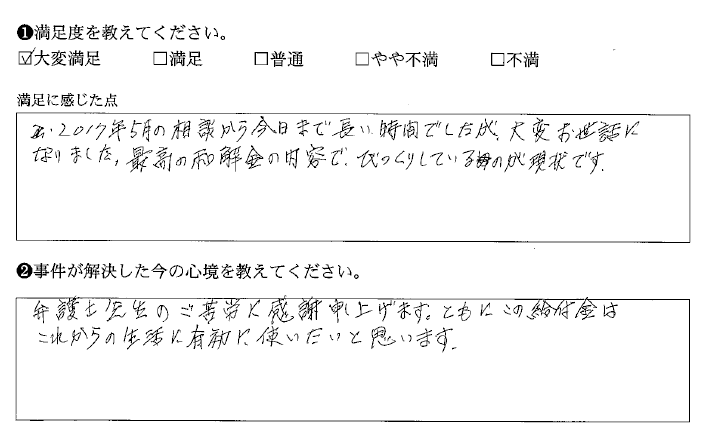 ❶満足度を教えてください。
☑大変満足 □満足 □普通 □やや不満 □不満
満足に感じた点
・2017年5月の相談から今日まで長い時間でしたが、大変お世話に
なりました。最高の和解金の内容で、びっくりしているのが現状です。
❷事件が解決した今の心境を教えてください。
弁護士先生のご苦労に感謝申し上げます。ともにこの給付金は
これからの生活に有効に使いたいと思います。